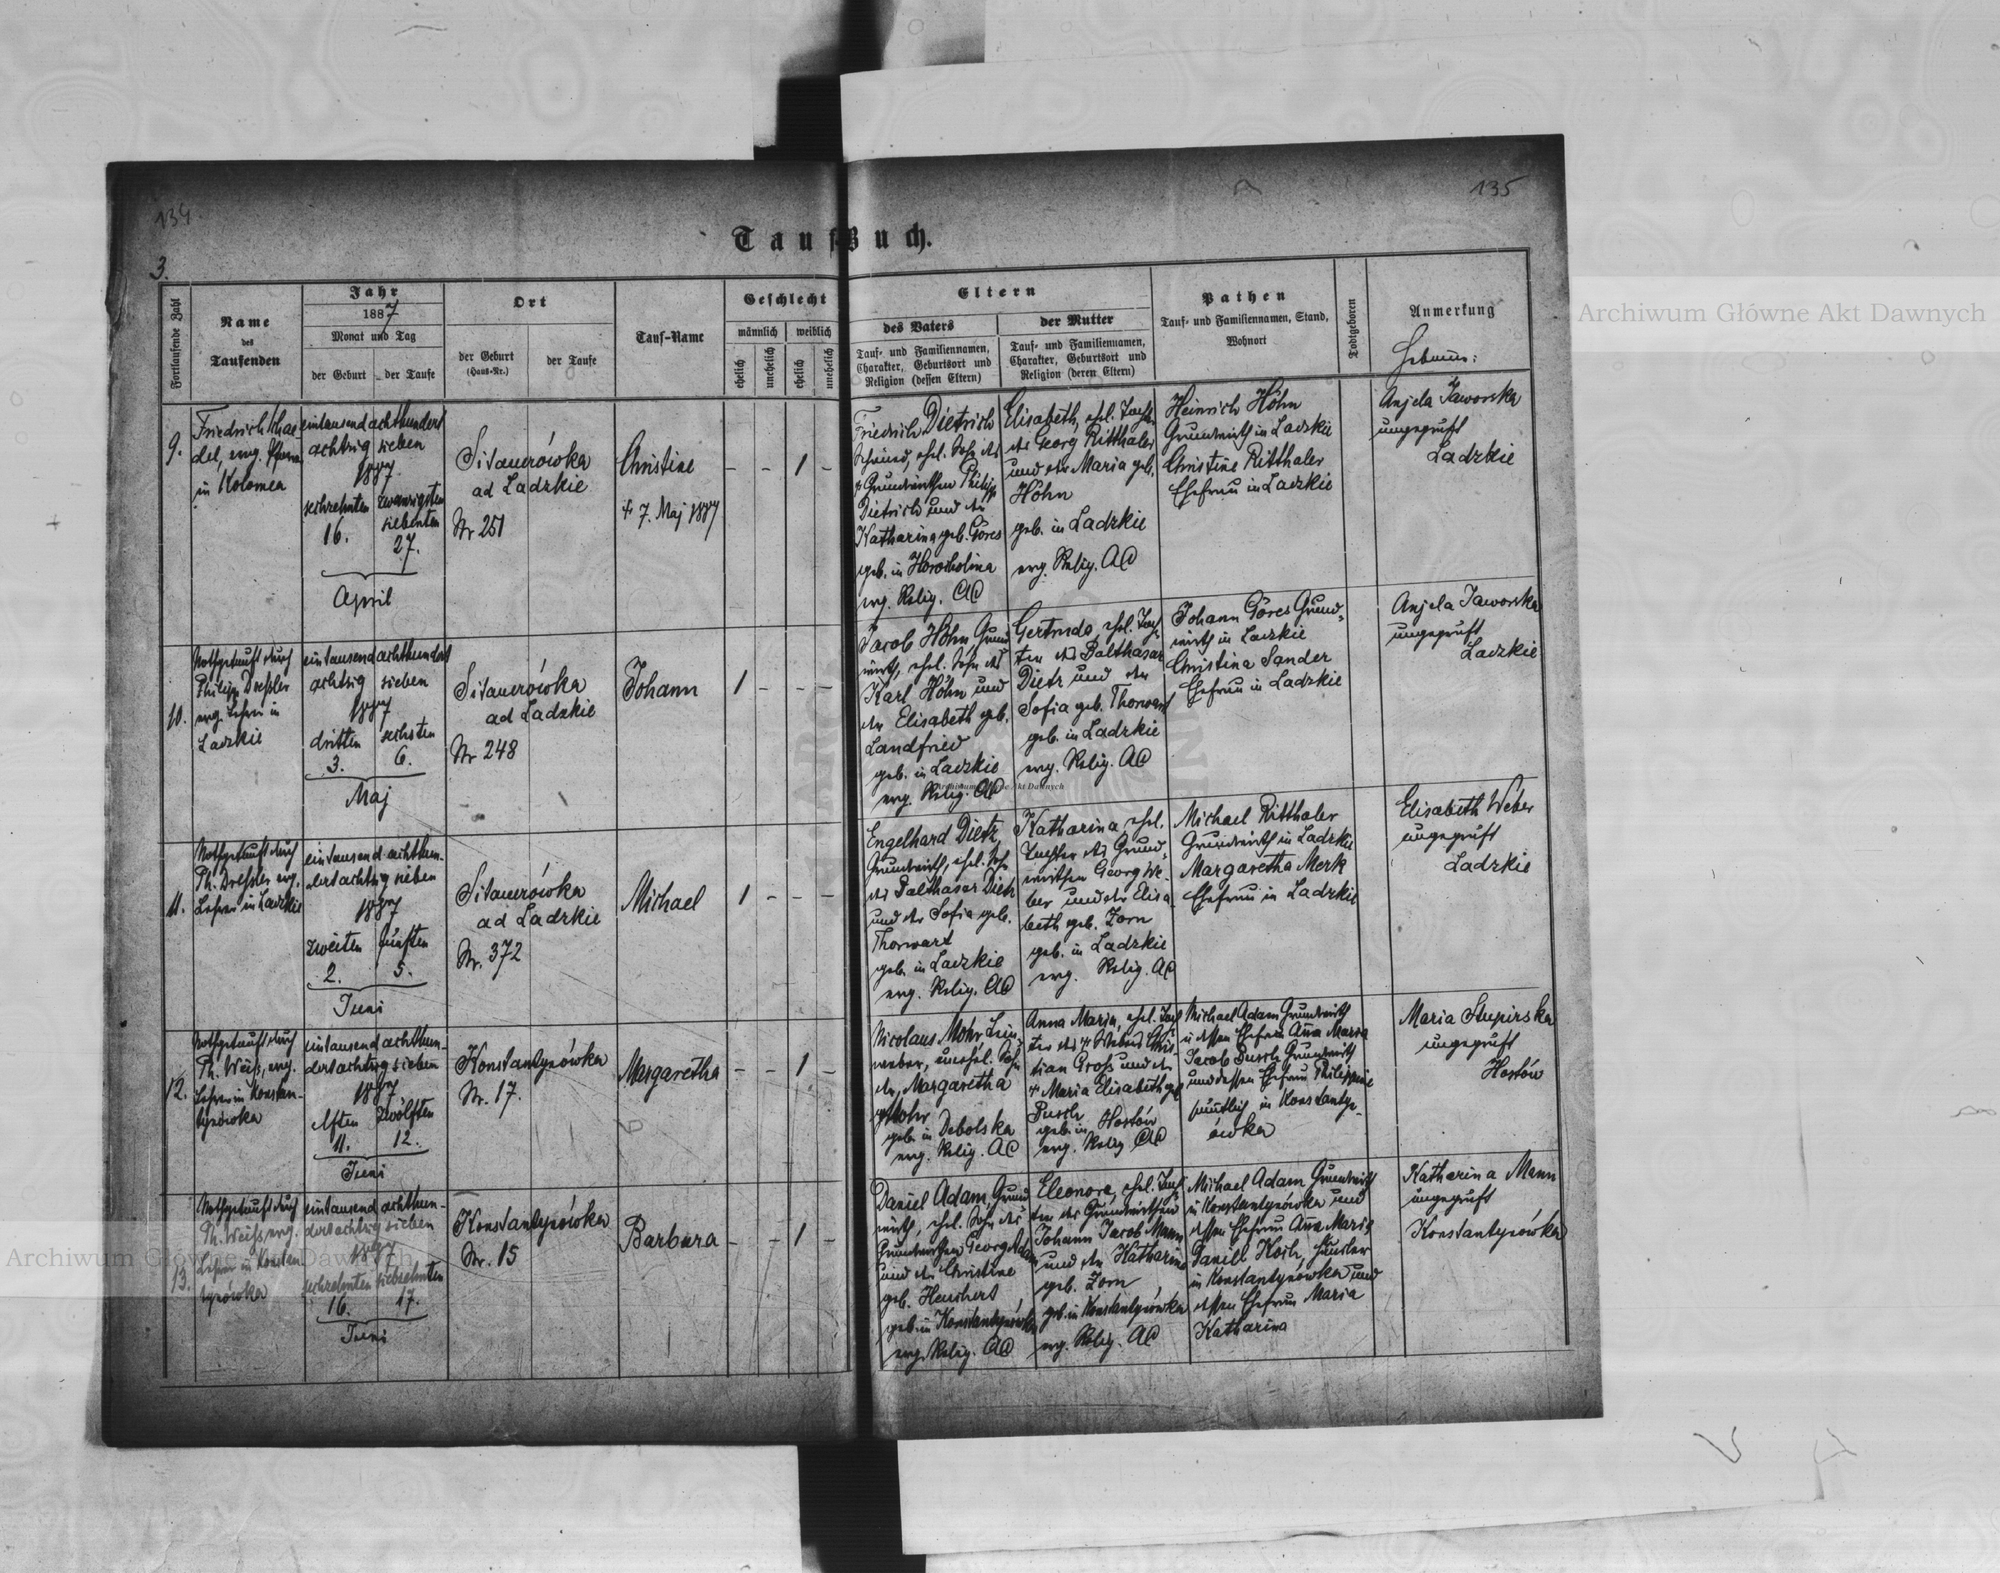 134.
135
Tauf-Buch.
3.
Fortlaufende Zahl
Name
des
Taufenden
Jahr
1887
Monat und Tag
der Geburt
der Taufe
Ort
der Geburt
(Haus-Nr.)
der Taufe
Tauf-Name
Geschlecht
männlich
weiblich
ehelich
unehelich
ehelich
unehelich
Eltern
des Vaters
Tauf- und Familiennamen,
Charakter, Geburtsort und
Religion (dessen Eltern)
der Mutter
Tauf- und Familiennamen,
Charakter, Geburtsort und
Religion (deren Eltern)
Pathen
Tauf- und Familiennamen, Stand,
Wohnort
Todtgeboren
Anmerkung
9.
Friedrich
evng.
in Kolomea
eintausend achthundert
achtzig sieben
1887
sechzehnten
16.
zwanzigsten
siebenten
27.
April
Sitauerówka
ad Ladzkie
Nr 251
Christine
† 7. Maj 1887
- - 1 -
Friedrich Dietrich
Schmied, ehel. Sohn des
† Grundwirthen Philipp
Dietrich und der
Katharina geb. Göres
geb. in Horocholina
evg. Relig. AC
Elisabeth, ehel. Toch.
des Georg Ritthaler
und der Maria geb.
Höhn
geb. in Ladzkie
evg. Relig. AC
Heinrich Höhn
Grundwirth in Ladzkie
Christine Ritthaler
Ehefrau in Ladzkie
Anjela Jaworska
ungeprüft
Ladzkie
10.
Nothgetauft durch
Philipp Dreßler
evg. Lehrer in
Ladzkie
eintausend achthundert
achtzig sieben
1887
dritten
3.
sechsten
6.
Maj
Sitauerówka
ad Ladzkie
Nr 248
Johann
1 - - -
Jacob Höhn Grund
wirth, ehel. Sohn des
Karl Höhn und
der Elisabeth geb.
Landfried
geb. in Ladzkie
evg. Relig. AC
Gertruda, ehel. Toch
ter des Balthasar
Dietz und der
Sofia geb. Thorwart
geb. in Ladzkie
evg. Relig. AC
Johann Göres Grund-
wirth in Ladzkie
Christina Sander
Ehefrau in Ladzkie
Anjela Jaworska
ungeprüft
Ladzkie
11.
Nothgetauft durch
Ph. Dreßler evg.
Lehrer in Ladzkie
eintausend achthun-
dert achtzig sieben
1887
zweiten
2.
fünften
5.
Juni
Sitauerówka
ad Ladzkie
Nr. 372
Michael
1 - - -
Engelhard Dietz
Grundwirth, ehel. Sohn
des Balthasar Dietz
und der Sofia geb.
Thorwart
geb. in Ladzkie
evg. Relig. AC
Katharina ehel.
Tochter des Grund-
wirthen Georg We-
ber und der Elisa-
beth geb. Zorn
geb. in Ladzkie
evg. Relig. AC
Michael Ritthaler
Grundwirth in Ladzkie
Margaretha Merk
Ehefrau in Ladzkie
Elisabeth Weber
ungeprüft
Ladzkie
12.
Nothgetauft durch
Ph. Weiß, evg.
Lehrer in Konstan-
tynówka
eintausend achthun-
dert achtzig sieben
1887
elften
11.
zwölften
12.
Juni
Konstantynówka
Nr. 17.
Margaretha
- - 1 -
Nicolaus Mohr Lein-
weber, unehel. Sohn
der Margaretha
Mohr
geb. in Debolska
evg. Relig. AC
Anna Maria, ehel. Toch
ter des † Webers Chris-
tian Groß und der
† Maria Elisabeth geb
Pusch
geb. in Hostów
evg. Relig AC
Michael Adam Grundwirth
u dessen Ehefrau Anna Maria
Jacob Pusch Grundwirth
und dessen Ehefrau Philippine
sämtlich in Konstanty-
ówka
Maria Stupirska
ungeprüft
Hostów
13.
Nothgetauft durch
Ph. Weiß, evg.
Lehrer in Konstan
tynówka
eintausend achthun-
dert achtzig sieben
1887
sechzehnten
16.
siebzehnten
17.
Juni
Konstantynówka
Nr. 15
Barbara
- - 1 -
Daniel Adam Grund
wirth, ehel. Sohn des
Grundwirthen Georg Adam
und der Christine
geb. Heuchert
geb. in Konstantynówka
evg. Relig. AC
Eleonore, ehel. Toch
ter des Grundwirthen
Johann Jacob Mann
und der Katharina
geb. Zorn
geb. in Konstantynówka
evg. Relig. AC
Michael Adam Grundwirth
in Konstantynówka und
dessen Ehefrau Anna Maria
Daniel Koch, Häusler
in Konstantynówka und
dessen Ehefrau Maria
Katharina
Katharina Mann
ungeprüft
Konstantynówka
Archiwum Główne Akt Dawnych
Archiwum Główne Akt Dawnych
Archiwum Główne Akt Dawnych